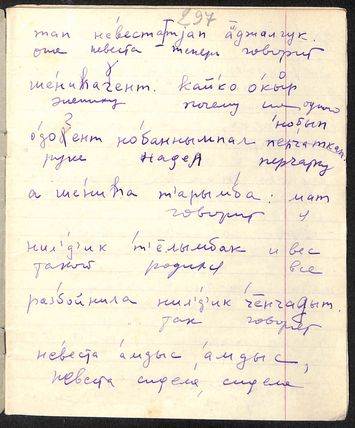 297
тап не́веста тјап а̄џалчук.
она невеста теперь говорит
ше́ниҥаɣент. кайко о́кыр
жениху почему на одного
но́бып
о́до ент но́баннымпал перча́ткам.
руке надел перчатку
а ше́ниҥа т'арымба: мат
говорит я
нил'д'ик т'ёлымбак и вес
такой родился все
разбойника нил'д'ик че̄нчадыт.
так говорят
не́веста а́мдыс, а́мдыс,
невеста сидела, сидела